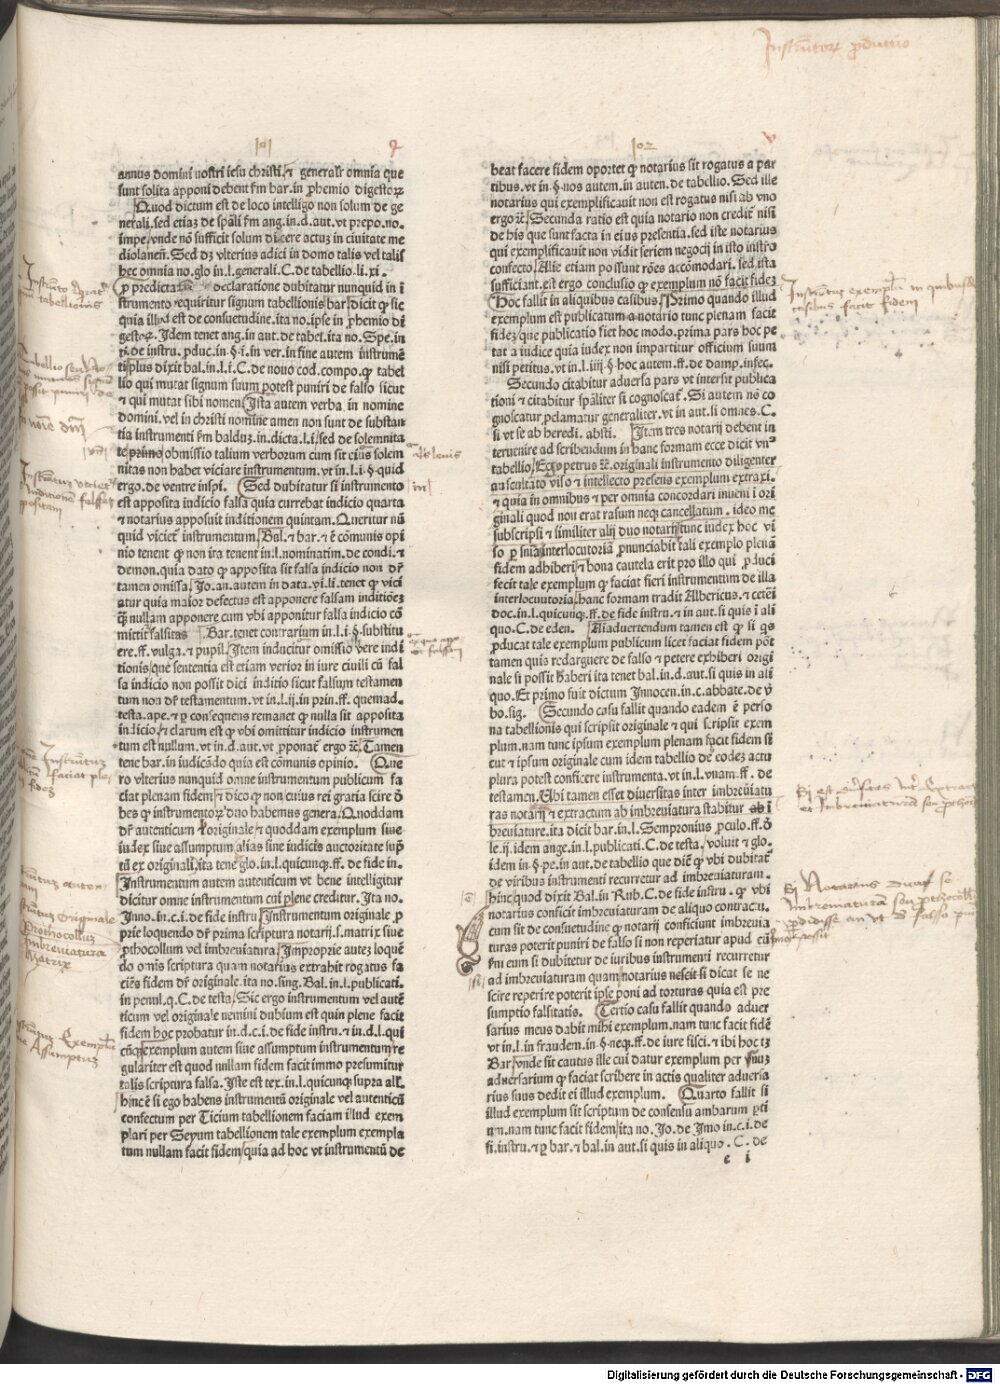 101
102
annus domini nostri iesu christi. ⁊ generalr̄ omnia que
sunt solita apponi debent ẜm bar. in ꝓhemio digestoꝝ
Quod dictum est de loco intelligo non solum de ge
nerali. sed etiaꝫ de spāli ẜm ang. in. d. aut. vt prepo. no.
impe. vnde nō sufficit solum dicere actuꝫ in ciuitate me
diolaneñ. Sed dꝫ vlterius adici in domo talis vel talis
hec omnia no. glo in. l. generali. C. de tabellio. li. xi.
declaratione dubitatur nunquid in ī
strumento requiritur signum tabellionis bar. dicit ꝙ sic
quia illud est de consuetudine. ita no. ipse in ꝓhemio di
gestoꝝ. Idem tenet ang. in aut. de tabel. ita no. Spe. in
ti. de instru. ꝓduc. in. §. i. in ver. in fine autem instrumē
ti plus dixit bal. in. l. i. C. de nouo cod. compo. ꝙ tabel
lio qui mutat signum suum potest puniri de falso sicut
⁊ qui mutat sibi nomen Ista autem verba in nomine
domini. vel in christi nomine amen non sunt de substan
tia instrumenti ẜm baldus. in. dicta. l. i. sed de solemnita
te primo obmissio talium verborum cum sit eius solem
nitas non habet viciare instrumentum. vt in. l. i. §. quid
ergo. de ventre inspi. Sed dubitatur si instrumento
est apposita indicio falsa quia currebat indicio quarta
⁊ notarius apposuit inditionem quintam. Queritur nū
quid viciet instrumentum. Bal. ⁊ bar. ⁊ ē cōmunis opi
nio tenent ꝙ non ita tenent in. l. nominatim. de condi. ⁊
demon. quia dato ꝙ apposita sit falsa indicio non dr̄
tamen omissa. Jo. an. autem in data. vi. li. tenet ꝙ vici
atur quia maior defectus est apponere falsam inditiōeꝫ
ꝗ̄ nullam apponere cum vbi apponitur falsa indicio cō
mittit falsitas Bar. tenet contrarium in. l. i. §. substitu
ere. ff. vulga. ⁊ pupil. Item inducitur omissio vere indi
tionis. que sententia est etiam verior in iure ciuili cū fal
sa indicio non possit dici inditio sicut falsum testamen
tum non dr̄ testamentum. vt in. l. ij. in prin. ff. quemad.
testa. ape. ⁊ ꝑ consequens remanet ꝙ nulla sit apposita
indicio. ⁊ clarum est ꝙ vbi omittitur indicio instrumen
tum est nullum. vt in. d. aut. vt ꝓponat̄ ergo ⁊c̄. Tamen
tene bar. in iudicādo quia est cōmunis opinio. Que
ro vlterius nunquid omne instrumentum publicum fa
ciat plenam fidem ⁊ dico ꝙ non cuius rei gratia scire ō
bes ꝙ instrumentoꝝ duo habemus genera. Quoddam
dr̄ autenticum ł originale ⁊ quoddam exemplum siue
iudex siue assumptum alias sine iudicis auctoritate sup̄
tū ex originali. ita tene glo. in. l. quicunꝗ. ff. de fide in.
Instrumentum autem autenticum vt bene intelligitur
dicitur omne instrumentum cui plene creditur. Ita no.
Inno. in. c. i. de fide instru Instrumentum originale ꝓ
prie loquendo dr̄ prima scriptura notarij. s. matrix siue
ꝓthocollum vel imbreuiatura. Improprie auteꝫ loquē
do omīs scriptura quam notarius extrahit rogatus fa
ciēs fidem dr̄ originale. ita no. sing. Bal. in. l. publicati.
in penul. q. C. de testa. Sic ergo instrumentum vel autē
ticum vel originale nemini dubium est quin plene facit
fidem hoc probatur in. d. c. i. de fide instru. ⁊ in. d. l. qui
cūꝗ. exemplum autem siue assumptum instrumentum re
gulariter est quod nullam fidem facit immo presumitur
talis scriptura falsa. Iste est tex. in. l. quicunꝗ supra all.
hinc ē si ego habens instrumentū originale vel autenticū
confectum per Ticium tabellionem faciam illud exem
plari per Seyum tabellionem tale exemplum exempla
tum nullam facit fidem. quia ad hoc vt instrumentū de
beat facere fidem oportet ꝙ notarius sit rogatus a par
tibus. vt in. §. nos autem. in auten. de tabellio. Sed ille
notarius qui exemplificauit non est rogatus nisi ab vno
ergo ⁊c̄. Secunda ratio est quia notario non credit̄ nisi
de his que sunt facta in eius presentia. sed iste notarius
qui exemplificauit non vidit seriem negocij in isto instro
confecto. Alie etiam possunt rōes accōmodari. sed ista
sufficiant. est ergo conclusio ꝙ exemplum nō facit fideꝫ
Hoc fallit in aliquibus casibus. Primo quando illud
exemplum est publicatum a notario tunc plenam facit
fideꝫ. que publicatio fiet hoc modo. prima pars hoc pe
tat a iudice quia iudex non impartitur officium suum
nisi petitus. vt in. l. iiij. §. hoc autem. ff. de damp. infec.
Secundo citabitur aduersa pars vt intersit publica
tioni ⁊ citabitur spāliter si cognoscat̄. Si autem nō co
gnoscatur ꝓclamatur generaliter. vt in aut. si omnes. C.
si vt se ab heredi. absti. Item tres notarij debent in
teruenire ad scribendum in hanc formam ecce dicit vn⁹
tabellio. Ego petrus ⁊c̄. originali instrumento diligenter
auscultato viso ⁊ intellecto presens exemplum extraxi.
⁊ quia in omnibus ⁊ per omnia concordari inueni i ori
ginali quod non erat rasum neꝗ cancellatum. ideo me
subscripsi ⁊ similiter alij duo notarij tunc iudex hoc vi
so ꝑ sniam interlocutoriā ꝓnunciabit tali exemplo plenā
fidem adhiberi ⁊ bona cautela erit pro illo qui ꝓduci
fecit tale exemplum ꝙ faciat fieri instrumentum de illa
interlocutoria. hanc formam tradit Albericus. ⁊ ceteri
doc. in. l. quicunꝗ. ff. de fide instru. ⁊ in aut. si quis i ali
quo. C. de eden. Aliaduertendum tamen est ꝙ si ꝗs
ꝓducat tale exemplum publicum licet faciat fidem pōt
tamen quia redarguere de falso ⁊ petere exhiberi origi
nale si possit haberi ita tenet bal. in. d. aut. si quis in ali
quo. Et primo fuit dictum Innocen. in. c. abbate. de ṽ
bo. sig. Secundo casu fallit quando eadem ē perso
na tabellionis qui scripsit originale ⁊ qui scripsit exem
plum. nam tunc ipsum exemplum plenam facit fidem si
cut ⁊ ipsum originale cum idem tabellio de codeꝫ actu
plura potest conficere instrumenta. vt in. l. vnam. ff. de
testamen. Vbi tamen esset diuersitas inter imbreuiatu
ras notarij ⁊ extractum ab imbreuiatura stabitur ab i
breuiature. ita dicit bar. in. l. Sempronius ꝓculo. ff. ō
le. ij. idem ange. in. l. publicati. C. de testa. voluit ⁊ glo.
idem in. §. pe. in aut. de tabellio que diē ꝙ vbi dubitat̄
de viribus instrumenti recurretur ad imbreuiaturam.
hinc quod dixit Bal. in Rub. C. de fide instru. ꝙ vbi
notarius conficit imbreuiaturam de aliquo contractu.
cum sit de consuetudine ꝙ notarij conficiunt imbreuia
turas poterit puniri de falso si non reperiatur apud eū
ẜm eum si dubitetur de iuribus instrumenti recurretur
ad imbreuiaturam quam notarius nescit si dicat se ne
scire reperire poterit ipse poni ad torturas quia est pre
sumptio falsitatis. Tertio casu fallit quando aduer
sarius meus dabit mihi exemplum. nam tunc facit fidē
vt in. l. in fraudem. in. §. neꝗ. ff. de iure fisci. ⁊ ibi hoc tꝫ
Bar. vnde sit cautus ille cui datur exemplum per suuꝫ
aduersarium ꝙ faciat scribere in actis qualiter aduersa
rius suus dedit ei illud exemplum. Quarto fallit si
illud exemplum sit scriptum de consensu ambarum ꝑti
um. nam tunc facit fidem. ita no. Jo. de Imo in. c. i. de
fi. instru. ⁊ ꝑ bar. ⁊ bal. in aut. si quis in aliquo. C. de
e i
Digitalisierung gefördert durch die Deutsche Forschungsgemeinschaft - DFG